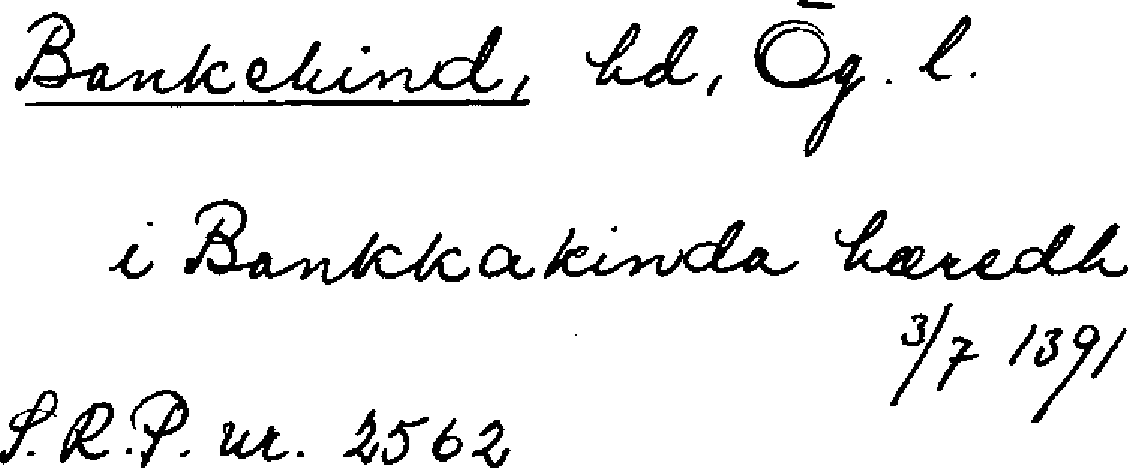 Bankekind, hd, Ög. l.
i Bankkakinda hæredh
3/7 1391
S.R.P. nr. 2562